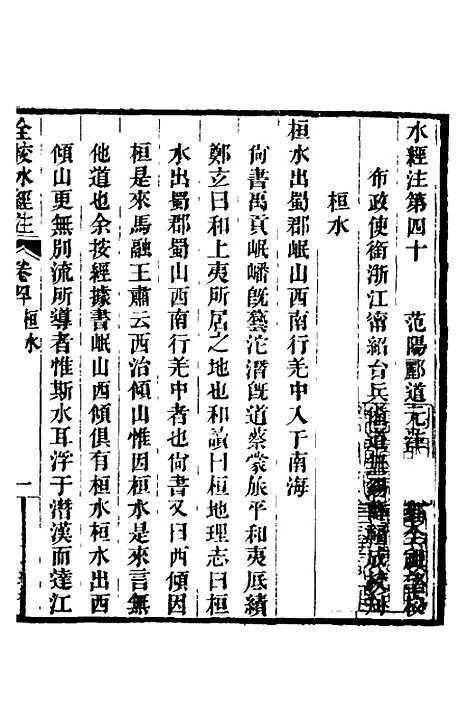 水經注第四十 范陽酈道元注
布政使銜浙江甯紹台兵備道無錫薛福成校刊
桓水
桓水出蜀郡岷山西南行羌中入于南海
尙書禹貢岷嶓旣藝沱潛旣道蔡蒙旅平和夷厎績
鄭玄曰和上夷所居之地也和讀曰桓地理志曰桓
水出蜀郡蜀山西南行羌中者也尙書又曰西傾因
桓是來馬融王肅云西治傾山惟因桓水是來言無
他道也余按經據書岷山西傾俱有桓水桓水出西
傾山更無別流所導者惟斯水耳浮于潛漢而達江
全校水經注 卷四十 桓水 一